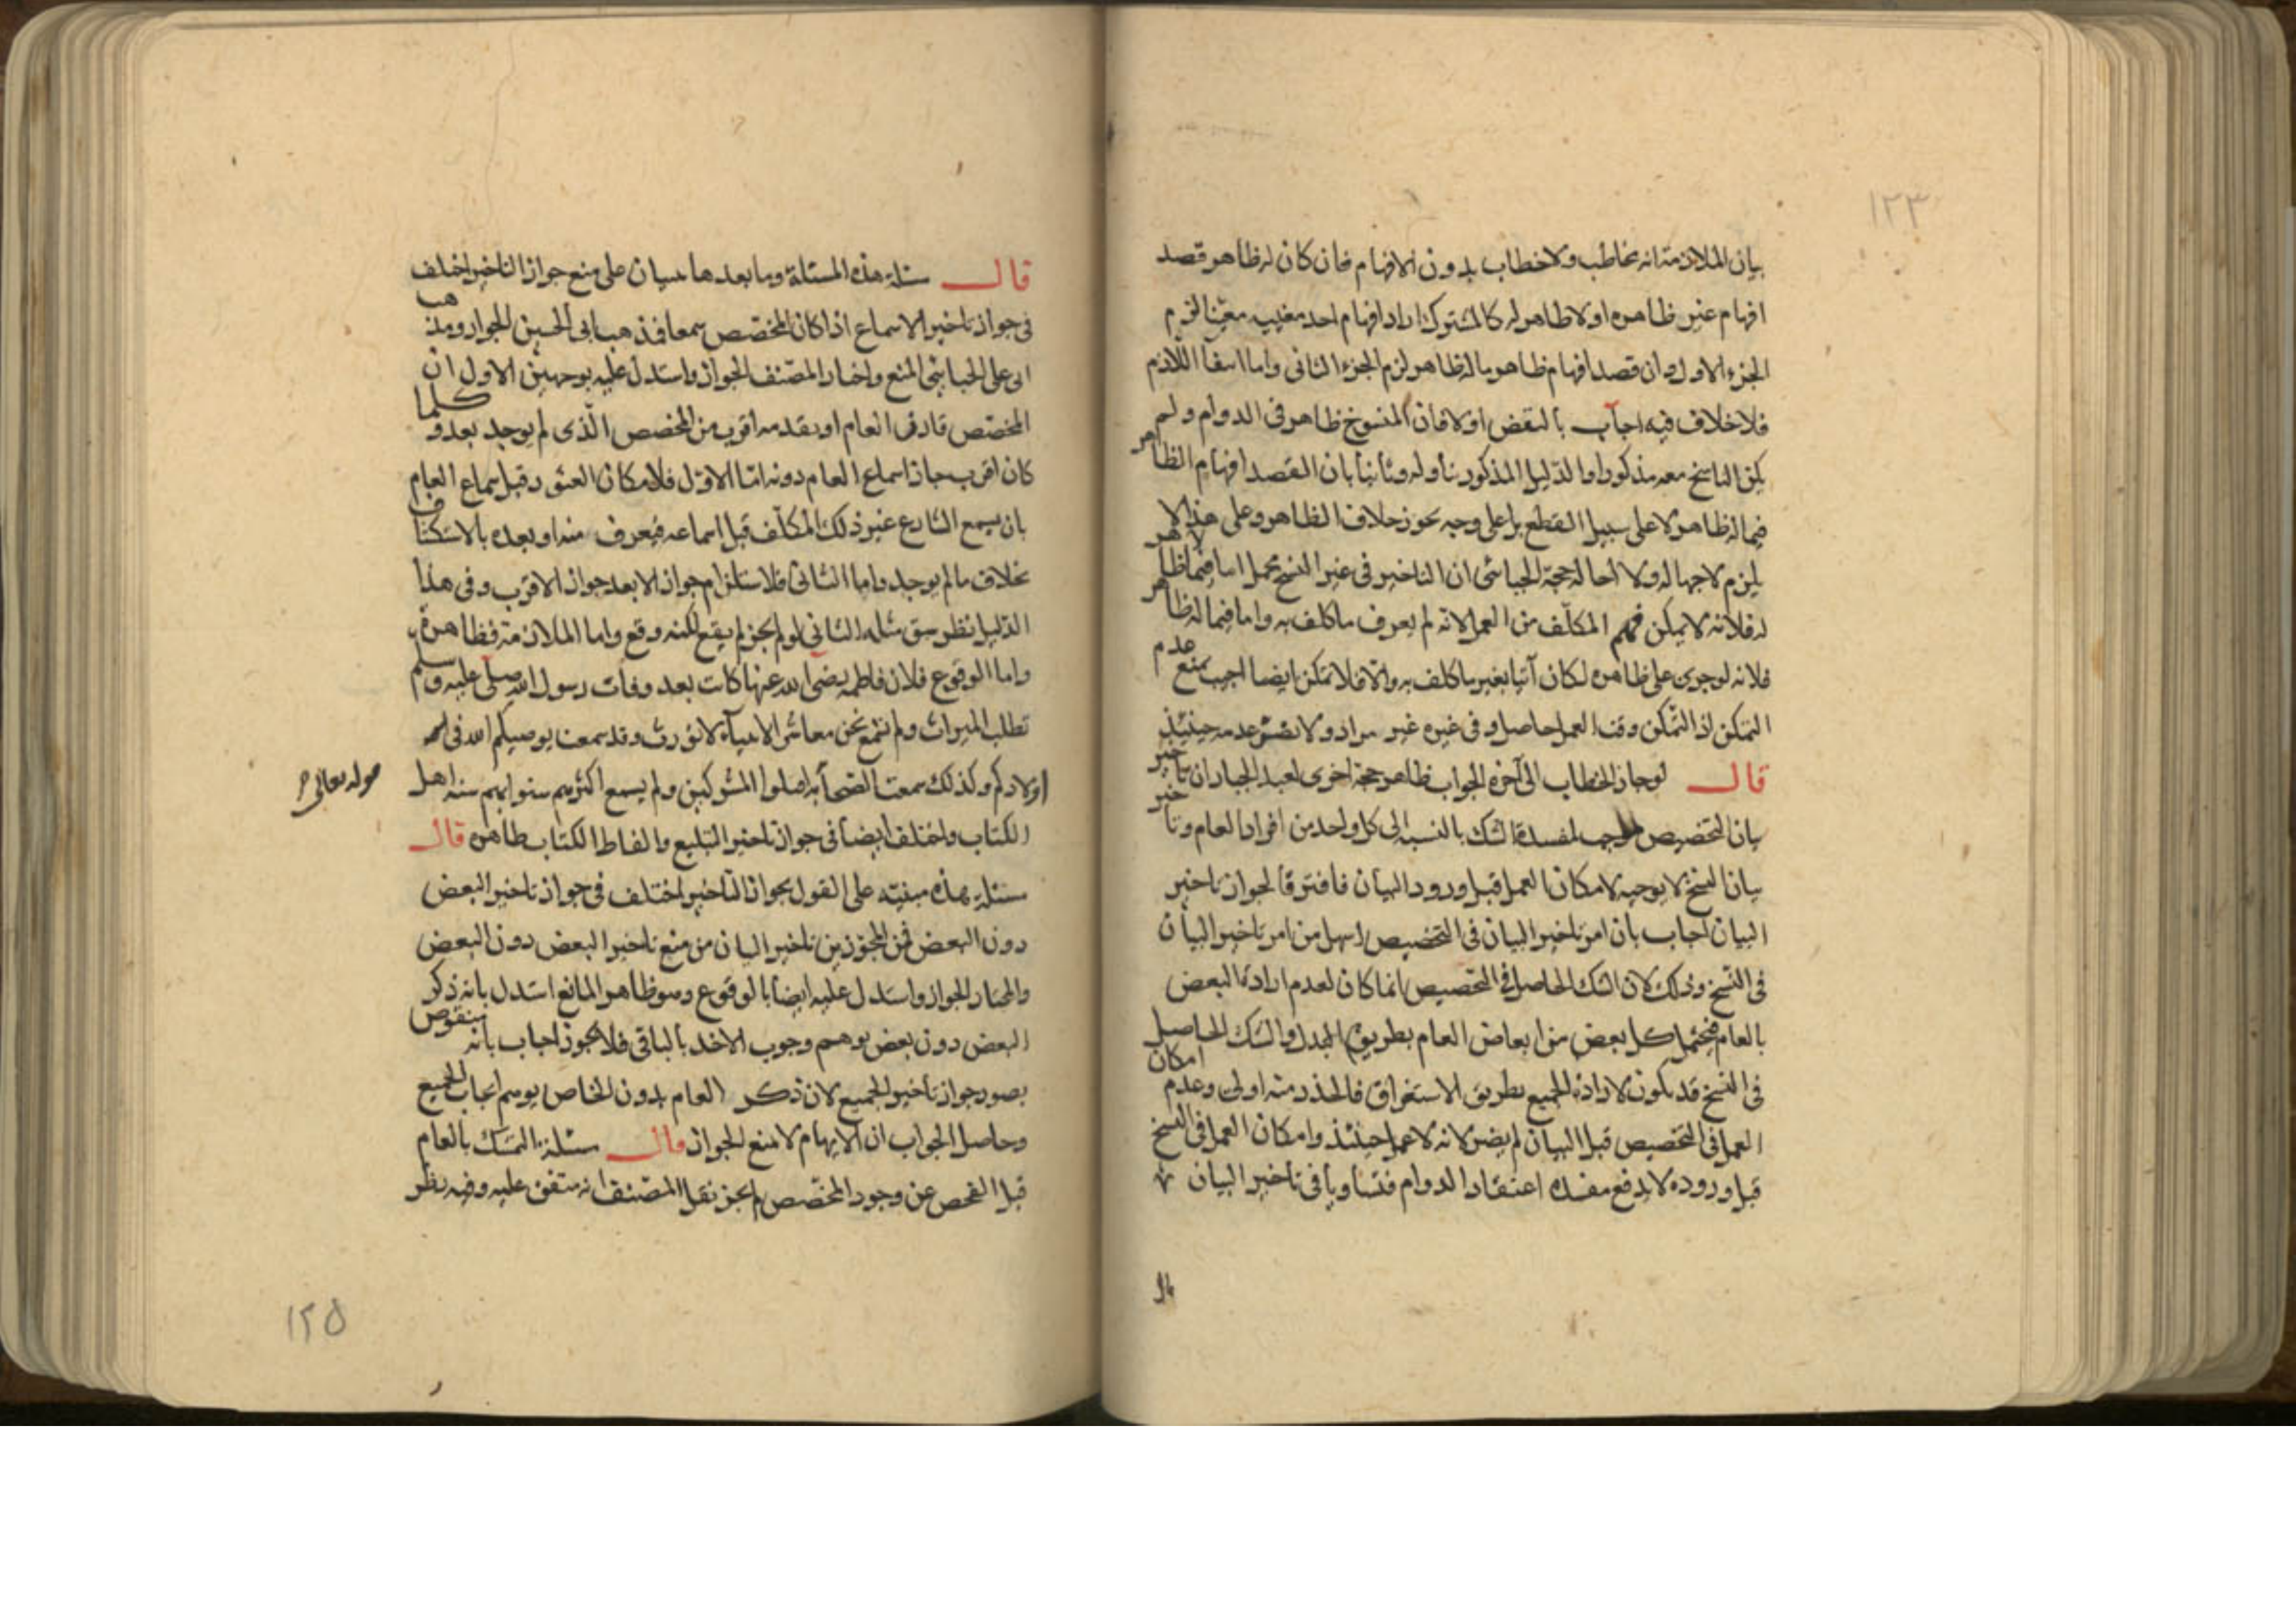 ١٢٣
بيان الملازمة انه مخاطب ولا خطاب بدون الافهام فان كان له ظاهر وقصد
افهام غير ظاهره او لا ظاهر له كالمشترك اراد افهام احد معنييه معينا لزم
الجزء الاول وان قصد افهام ظاهر ما له ظاهر لزم الجزء الثانى واما انتفا اللازم
فلا خلاف فيه اجاب بالنقض اولا فان المنسوخ ظاهر فى الدوام ولم
يكن الناسخ معه مذكورا والدليل المذكور يتأوله وثانيا بان القصد افهام الظاهر
فيما له ظاهر لا على سبيل القطع بل على وجه يجوز خلاف الظاهر وعلى هذا لا
يلزم لا جهالة ولا احالة حجة الجبائى ان التاخير فى غير النسخ مخل اما فيما لا ظاهر
له فلانه لا يمكن فهم المكلف من العمل لانه لم يعرف ما كلف به واما فيما له ظاهر
فلانه لو جرى على ظاهره لكان آتيا بغير ما كلف به والا فلا تمكن ايضا اجيب بمنع عدم
التمكن اذ التمكن وقت العمل حاصل وفى غيره غير مراد ولا نفس عدمه حينئذ
قال لو جاز الخطاب الى آخره الجواب ظاهر حجة اخرى لعبد الجبار ان تاخير
بيان التخصيص موجب لمفسدة الشك بالنسبة الى كل واحد من افراد العام وتاخير
بيان النسخ لا يوجبه لامكان العمل قبل ورود البيان فافترقا لجواز تاخير
البيان اجاب بان امر تاخير البيان فى التخصيص اسهل من امر تاخير البيان
فى النسخ وذلك لان الشك الحاصل فى التخصيص انما كان لعدم ارادة البعض
بالعام فيحتمل كل بعض من ابعاض العام بطريق البدل والشك الحاصل
فى النسخ قد يكون لارادة الجميع بطريق الاستغراق فالحذر منه اولى وعدم امكان
العمل فى التخصيص قبل البيان لم يضر لانه لا عمل حينئذ وامكان العمل فى النسخ
قبل وروده لا يدفع مفسدة اعتقاد الدوام فتساويا فى تاخير البيان
قال
قال مسئلة هذه المسئلة وما بعدها على منع جواز التاخير اختلف
فى جواز تاخير الاسماع اذا كان المخصص سمعا فذهب ابى الحسين الجواز ومذهب
ابى على الجبائى المنع واختار المصنف الجواز واستدل عليه بوجهين الاول ان
المخصص قارن العام او تقدمه اقرب من المخصص الذى لم يوجد بعد وكلما
كان اقرب جاز اسماع العام دونه اما الاول فلامكان العثور قبل سماع العام
بان يسمع الشارع غير ذلك المكلف قبل اسماعه فيعرف منه او بعده بالاستكشاف
بخلاف ما لم يوجد واما الثانى فلاستلزام جواز الابعد جواز الاقرب وفى هذا
الدليل نظر سبق مثله الثانى لو لم يجز لم يقع لكنه وقع واما الملازمة فظاهرة
واما الوقوع فلان فاطمه رضى الله عنها كانت بعد وفات رسول الله صلى عليه وسلم
تطلب الميراث ولم تسمع نحن معاشر الانبياء لا نورث وقد سمعت يوصيكم الله فى
اولادكم وكذلك سمعت الصحابه اقتلوا المشركين ولم يسمع اكثرهم سنوا بهم سنه اهل
قوله تعالى
الكتاب واختلف ايضا فى جواز تاخير التبليغ والفاظ الكتاب ظاهره قال
مسئلة هذه مبنيه على القول بجواز التاخير اختلف فى جواز تاخير البعض
دون البعض فمن المجوزين تاخير البيان من منع تاخير البعض دون البعض
والمختار الجواز واستدل عليه ايضا بالوقوع وهو ظاهر المانع استدل بانه ذكر
البعض دون بعض يوهم وجوب الاخذ بالباقى فلا يجوز اجاب بانه منقوض
بصور جواز تاخير الجميع لان ذكر العام بدون الخاص يوهم ايجاب الجميع
وحاصل الجواب ان الايهام لا يمنع الجواز قال مسئلة التمسك بالعام
قبل الفحص عن وجود المخصص لم يجز نقل المصنف انه متفق عليه وفيه نظر
١٢٥